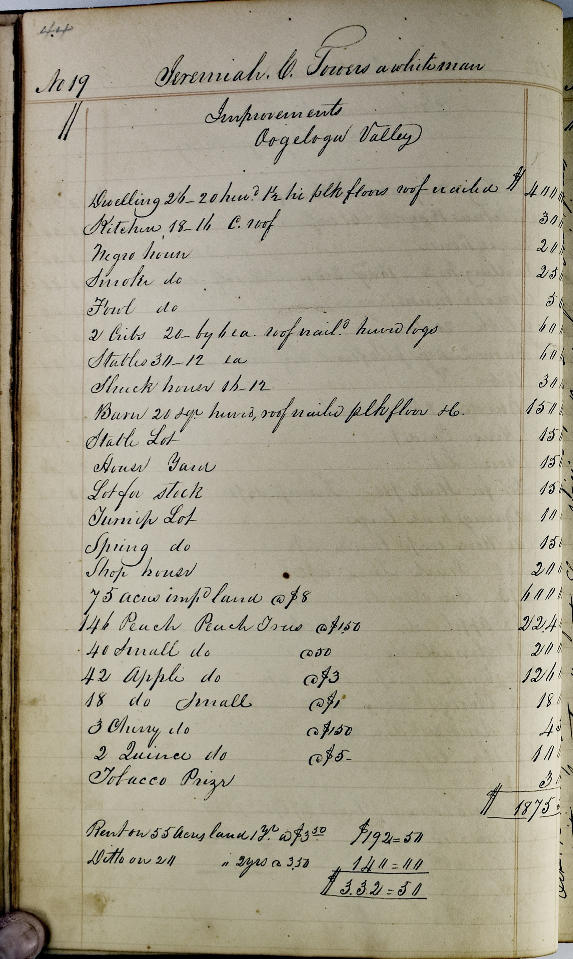 No 19 Jeremiah. C. Towers a white man
Improvements
Oogeloga Valley
Dwelling 26-20 hew.d 1½ hi plk floors roof nailed $ 400
Kitchen 18-16 C. roof 30
Negro house 20
Smoke do 25
Fowl do 5
2 Cribs 20 - by 6 ea. roof nail.d hewd logs 60
Stables 30-12 ea 60
Shuck house 16-12 30
Barn 20 sqr hewed, roof nailed plk floor &C. 150
Stable Lot 15
House Yard 15
Lot for stock 15
Turnip Lot 10
Spring do 15
Shop house 20
75 acres imp.d land @ $8 600
146 Peach Peach Trees @ $1.50 224
40 Small do @ 50 20
42 Apple do @ $3 126
18 do Small @ $1 18
3 Cherry do @ $1.50 4
2 Quince do @ $5- 10
Tobacco Prize 3
$ 1875
Rent on 55 acres land 1 yr. @ $3 50 $192=50
Ditto on 20 " 2 yrs @ 3.50 140=00
$ 332=50